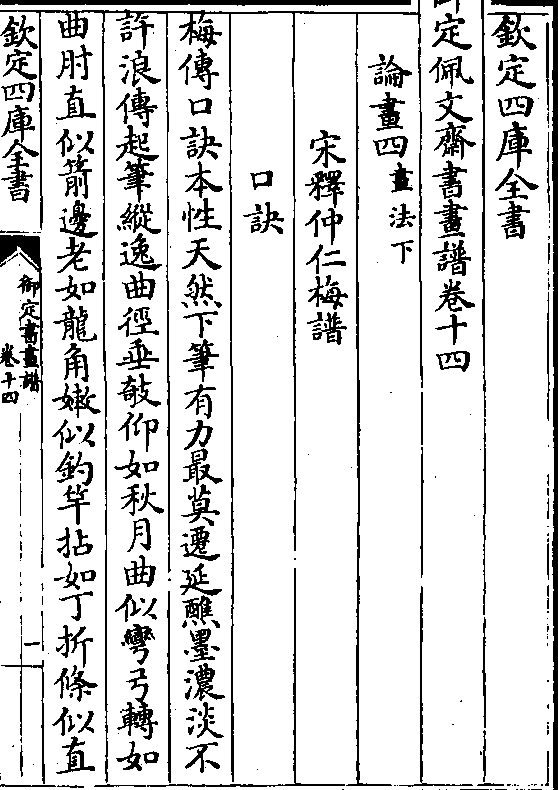 欽定四庫全書
御定佩文齋書畫譜卷十四
論畫四畫法下
宋釋仲仁梅譜
口訣
梅傳口訣本性天然下筆有力最莫遷延蘸墨濃淡不
許浪傳起筆縱逸曲徑垂攲仰如秋月曲似彎弓轉如
曲肘直似箭邊老如龍角嫩似釣竿拈如丁折條似直
欽定四庫全書
御定書畫譜
卷十四
一